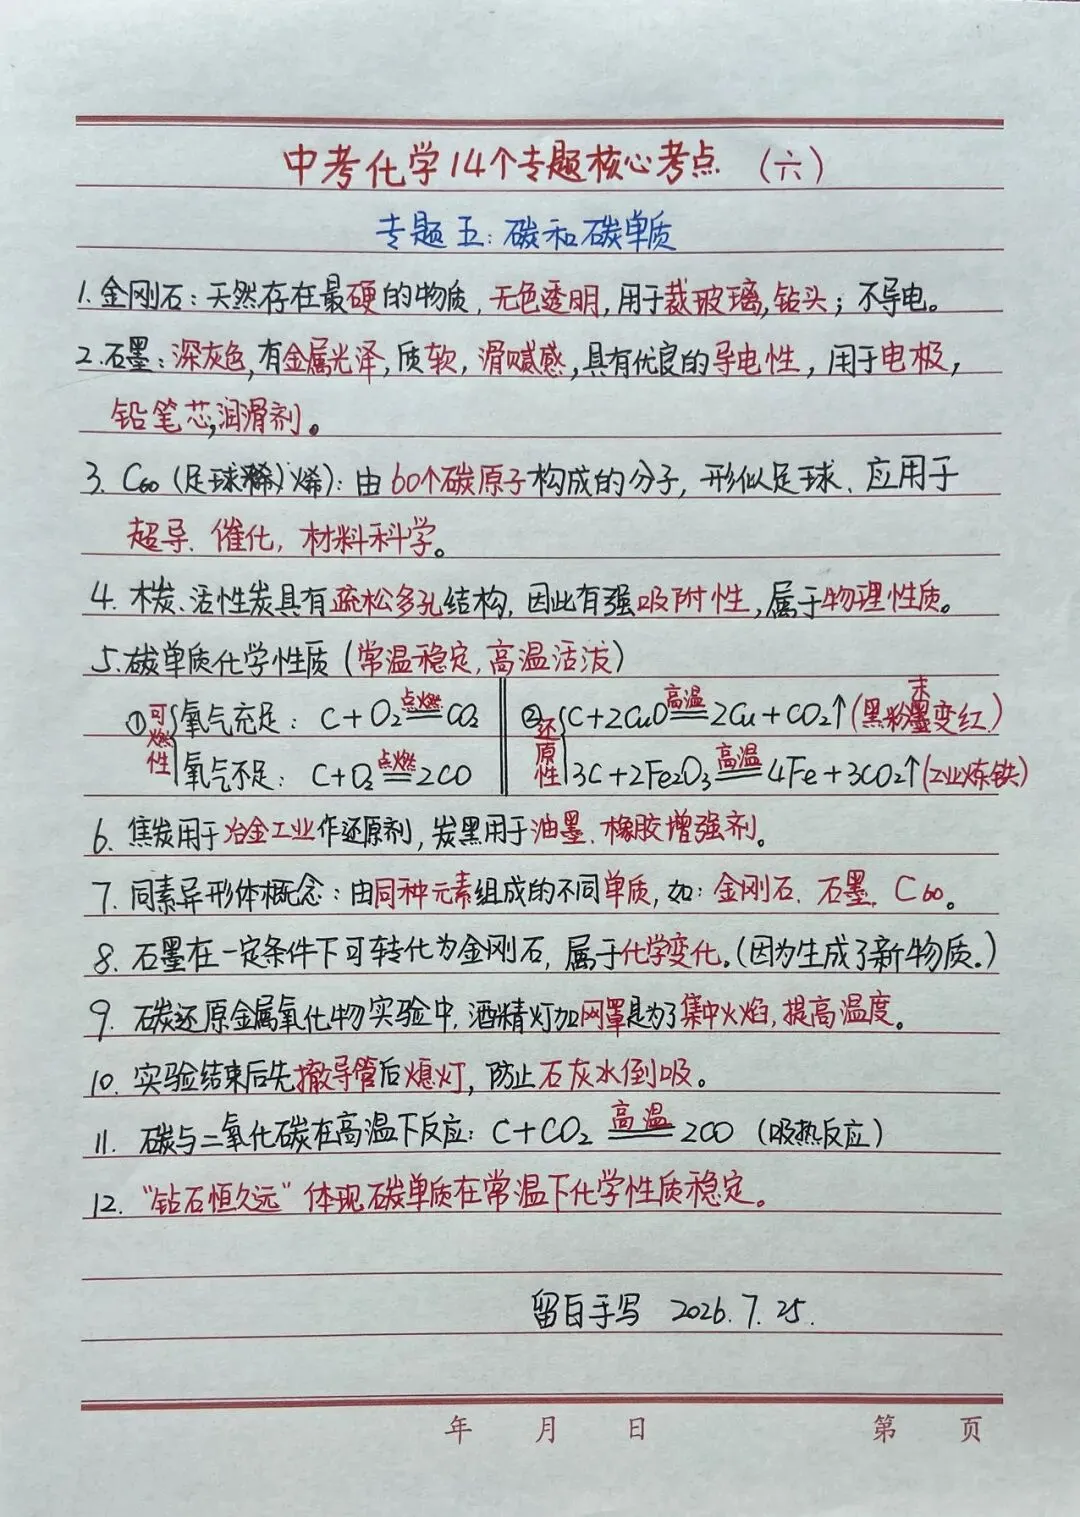 中考化学14个专题核心考点（六）
专题五：碳和碳单质
1.金刚石：天然存在最硬的物质，无色透明，用于裁玻璃，钻头；不导电。
2.石墨：深灰色，有金属光泽，质软，滑腻感，具有优良的导电性，用于电极，
铅笔芯，润滑剂。
3. C60（足球烯）烯）：由60个碳原子构成的分子，形似足球、应用于
超导、催化，材料科学。
4. 木炭、活性炭具有疏松多孔结构，因此有强吸附性，属于物理性质。
5.碳单质化学性质（常温稳定，高温活泼）
①可燃性 氧气充足：C+O2 点燃 CO2
氧气不足：C+O2 点燃 2CO
②还原性 C+2CuO 高温 2Cu+CO2↑（黑粉末变红）
3C+2Fe2O3 高温 4Fe+3CO2↑（工业炼铁）
6. 焦炭用于冶金工业作还原剂，炭黑用于油墨、橡胶增强剂。
7. 同素异形体概念：由同种元素组成的不同单质，如：金刚石、石墨、C60。
8. 石墨在一定条件下可转化为金刚石，属于化学变化。（因为生成了新物质。）
9. 碳还原金属氧化物实验中，酒精灯加网罩是为了集中火焰，提高温度。
10. 实验结束后先撤导管后熄灯，防止石灰水倒吸。
11. 碳与二氧化碳在高温下反应：C+CO2 高温 2CO（吸热反应）
12. “钻石恒久远”体现碳单质在常温下化学性质稳定。
留白手写 2026.7.25.
年 月 日 第 页